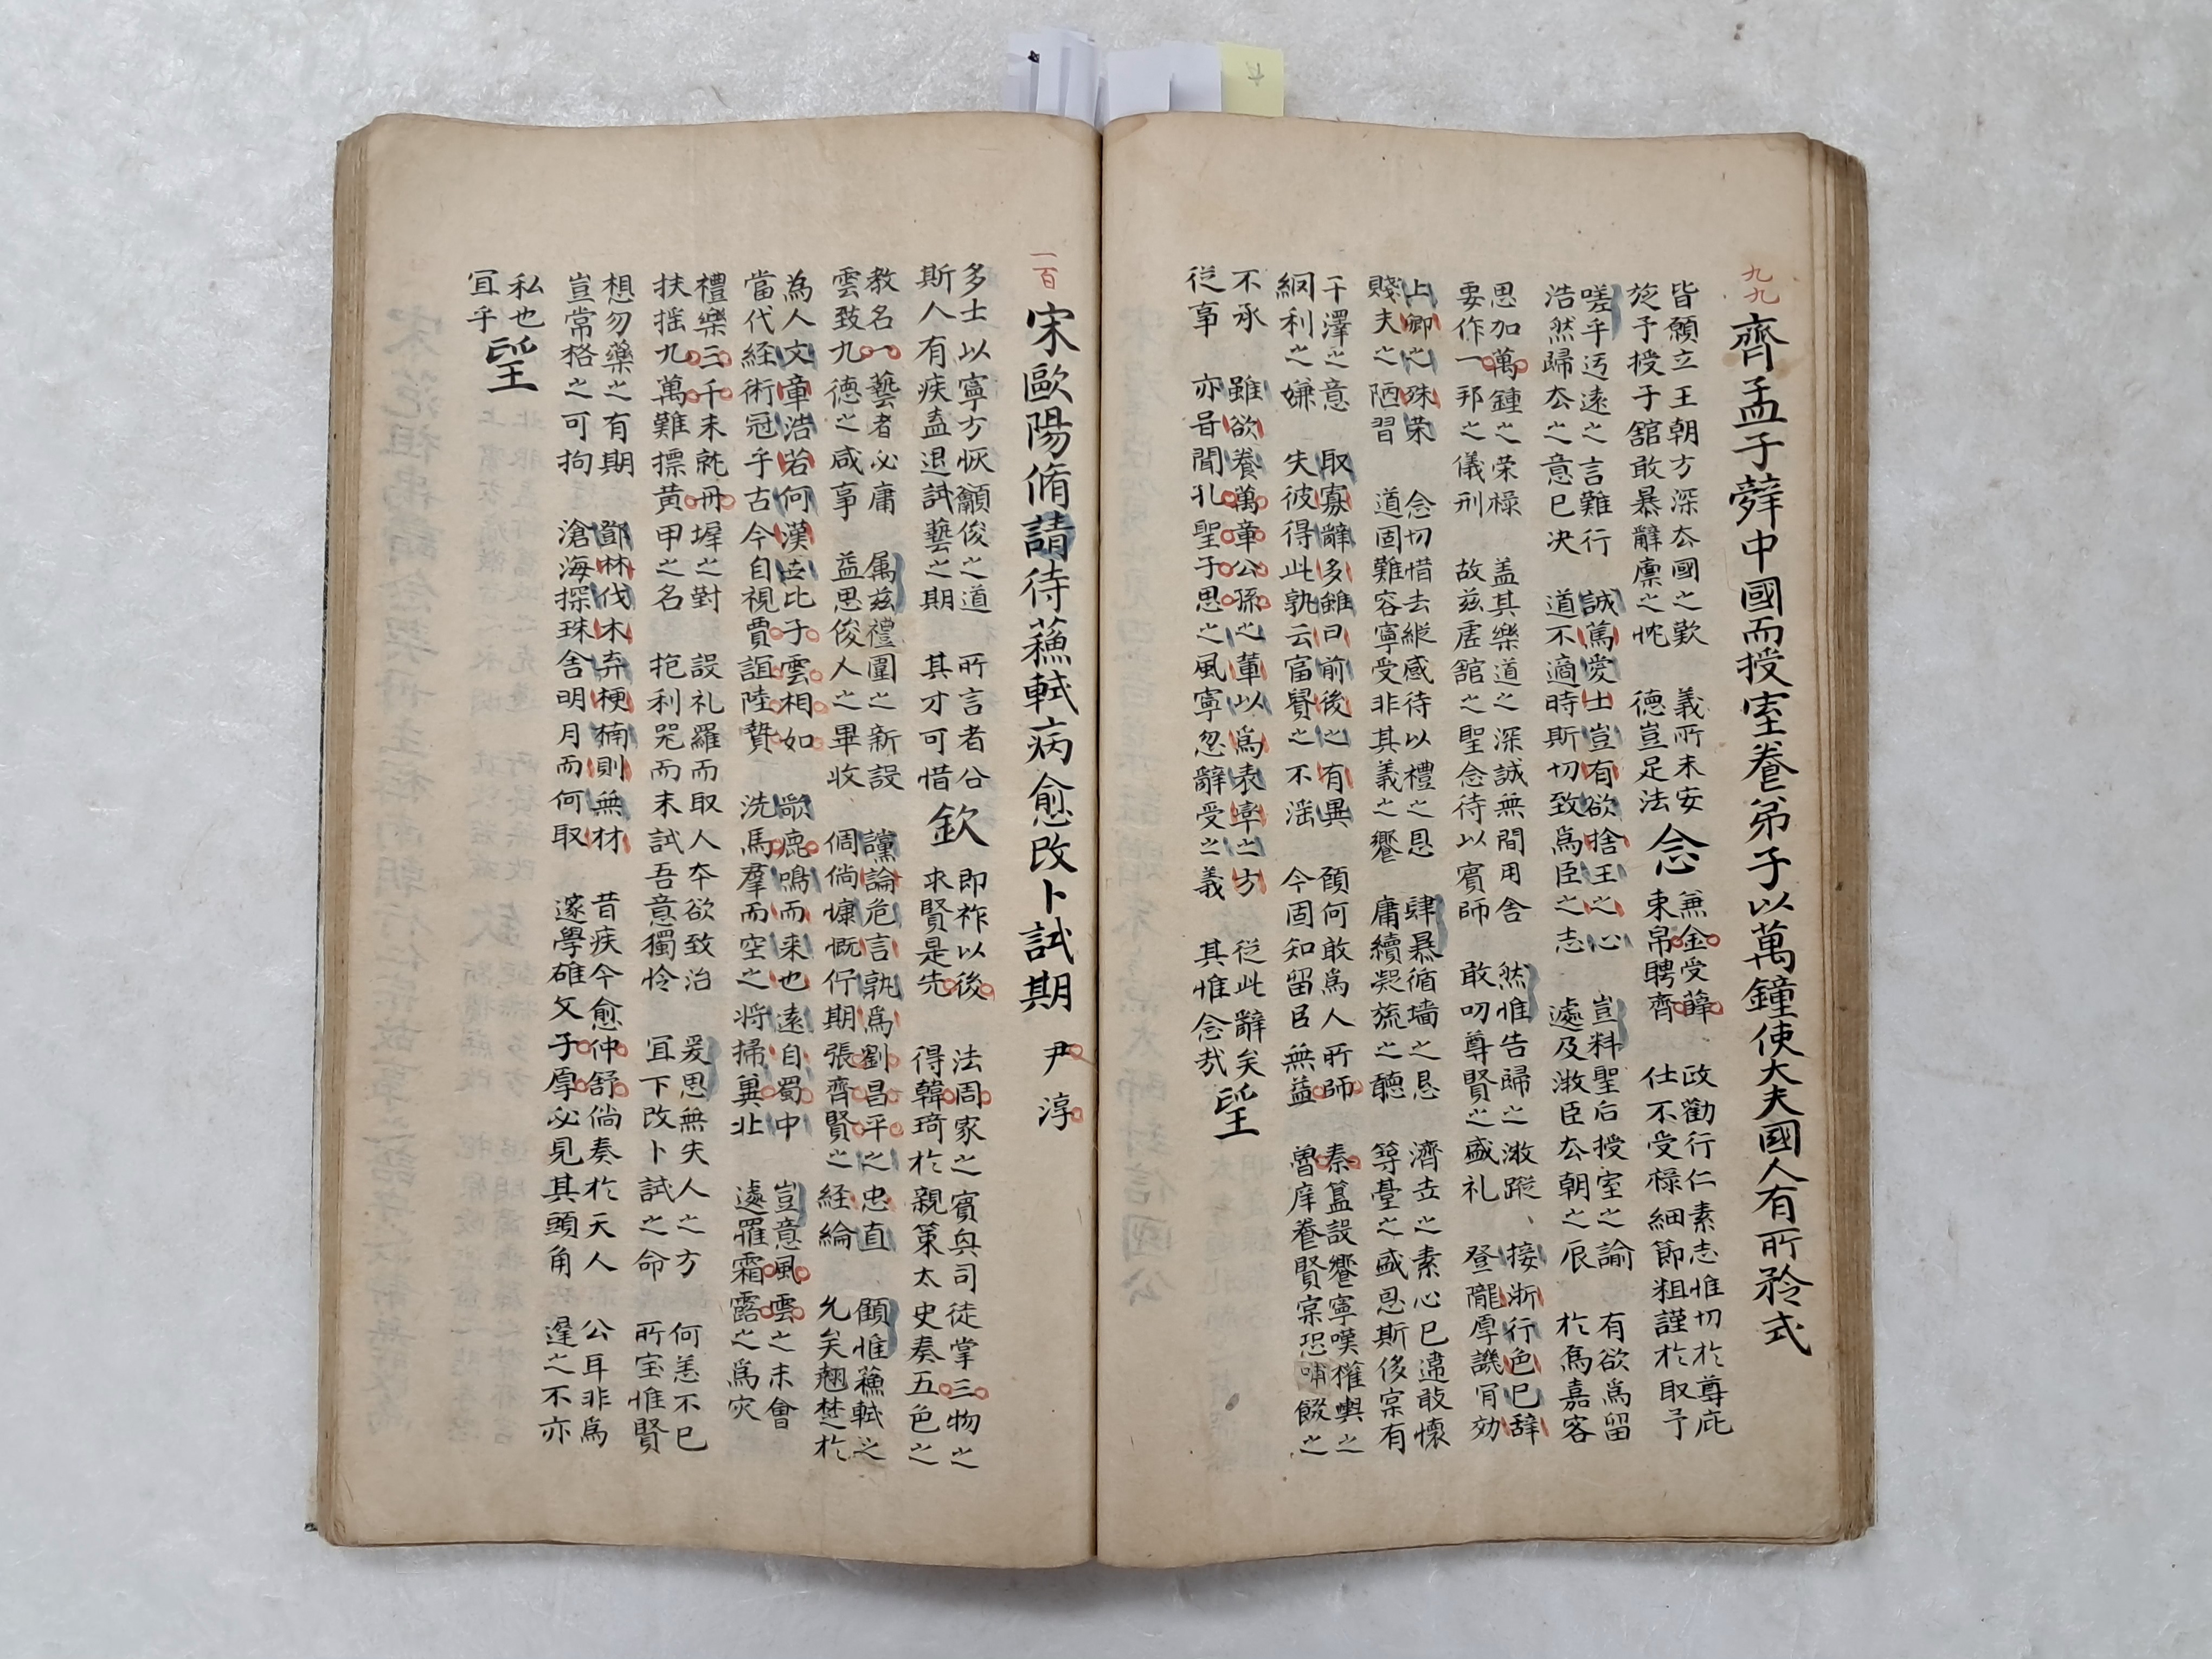 九九
齊孟子辤中國而授室養弟子以萬鐘使大夫國人有所矜式
皆願立王朝方深夲國之歎 義所未安
䓁予授子舘敢暴辭廩之忱 德豈足法
念
無金受薛 政勸行仁素志惟切於尊庇
束帛聘齊 仕不受祿細節粗謹於取予
嗟乎迃遠之言難行 誠篤愛士豈有欲捨王之心 豈料聖后授室之諭 有欲爲留
浩然歸夲之意已决 道不適時斯切致爲臣之志 遽及漵臣夲朝之辰 於焉嘉客
思加萬鍾之荣祿 盖其樂道之深誠無間用舍 然惟告歸之漵蹤 接淅行色已辞
要作一邦之儀刑 故兹虗舘之聖念待以賓師 敢叨尊賢之盛礼 登隴厚譏肯効
上卿之殊荣 念切惜去縱感待以禮之恩 肆暴循墻之恳 濟世之素心已違敢懷
賤夫之陋習 道固難容寧受非其義之饗 庸續凝旒之聽 䓁臺之盛恩斯侈寀有
干澤之意 取寡辭多雖曰前後之有異 顔何敢爲人所師 秦簋設饗寧嘆權輿之
網利之嫌 失彼得此孰云富賢之不滛 今固知留臣無益 魯庠養賢寀恐哺餟之
不承 雖欲養萬章公孫之軰以爲表率之方 從此辭矣
從事 亦甞聞孔聖子思之風寧忽辭受之義 其惟念哉
望
一百
宋歐陽脩請待蘓軾病愈改卜試期 尹淳
多士以寧方恢籲俊之道 所言者公
斯人有疾盍退試藝之期 其才可惜
欽
即祚以後 法周家之賓與司徒掌三物之
求賢是先 得韓琦於親策太史奏五色之
教名一藝者必庸 属兹禮圍之新設 讜論危言孰爲劉昌平之忠直 顧惟蘓軾之
雲致九德之咸事 益思俊人之畢收 倜倘慷慨佇期張齊賢之経綸 允矣翹楚於
為人文章浩若何漢世比子雲相如 歌鹿鳴而来也遠自蜀中 豈意風雲之未會
當代経術冠乎古今自視賈誼陸贄 洗馬羣而空之将掃冀北 遽罹霜露之爲灾
禮樂三千未就冊墀之對 設礼羅而取人夲欲致治 爰思無失人之方 何恙不已
扶搖九萬難摽黄甲之名 抱利咒而未試吾意獨怜 冝下改卜試之命 所宝惟賢
想勿藥之有期 鄧林伐木弃梗楠則無材 昔疾今愈仲舒倘奏於天人 公耳非爲
豈常格之可拘 滄海探珠舍明月而何取 邃學碓文子厚必見其頭角 遲之不亦
私也
冝乎
望